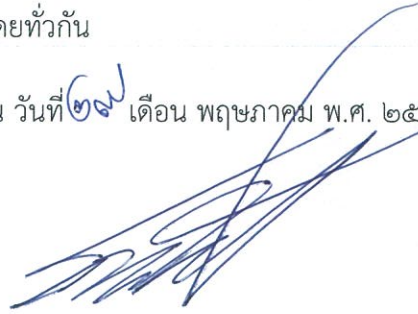 ดยทั่วกัน
วันที่ ๒๙ เดือน พฤษภาคม พ.ศ. ๒๕